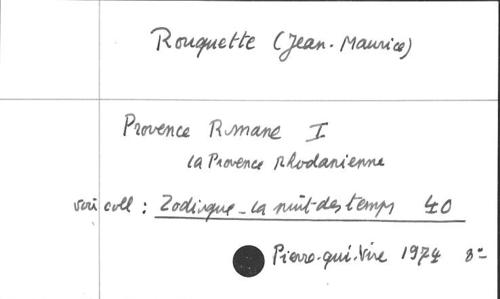 Rouquette (Jean-Maurice)
Provence Romane I
La Provence Rhodanienne
voir coll : Zodiaque - La nuit des temps 40
Pierre-qui-Vire 1974 8°